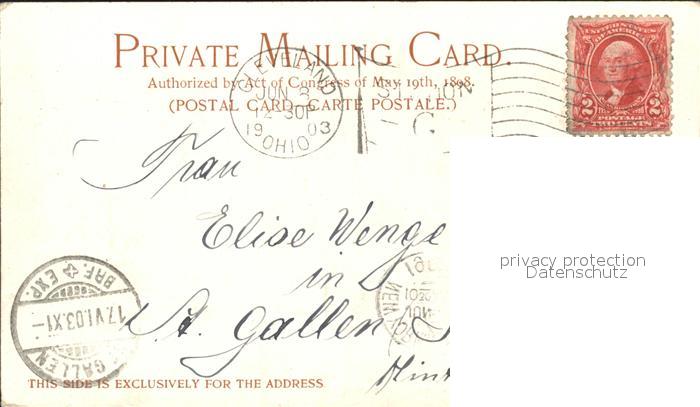 PRIVATE MAILING CARD.
Authorized by Act of Congress of May 19th, 1898.
(POSTAL CARD—CARTE POSTALE.)
CLEVELAND
JUN 8
12-30P
1903
OHIO
STATION
C
UNITED STATES
OF AMERICA
2 2
POSTAGE
TWO CENTS
Frau
Elise Wenge
in
St. Gallen
privacy protection
Datenschutz
BRF. EXP.
17.VI.03.XI-
GALLEN
NEW
THIS SIDE IS EXCLUSIVELY FOR THE ADDRESS